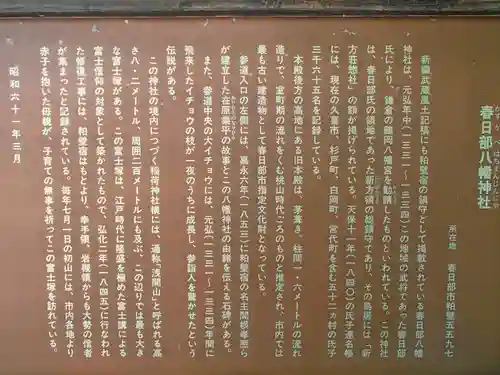 春日部八幡神社
所在地 春日部市粕壁五五九七
新編武蔵風土記稿にも粕壁宿の鎮守として掲載されている春日部八幡
神社は、元弘年中(一三三一〜一三三四)この地域の武将であった春日部
氏により、鎌倉の鶴岡八幡宮を勧請したものといわれている。この神社
は、春日部氏の領地であった新方領の総鎮守であり、その鳥居には「新
方荘惣社」の額が掲げられている。天保十一年(一八四〇)の氏子連名帳
には、現在の久喜市、杉戸町、白岡町、宮代町を含む五十二ヵ村の氏子
三千六十五名を記録している。
本殿後方の高地にある旧本殿は、茅葺き、柱間一・六メートルの流れ
造りで、室町期の流れをくむ桃山時代ごろのものと推定され、市内では
最も古い建造物として春日部市指定文化財となっている。
参道入口の左側には、嘉永六年(一八五三)に粕壁宿の名主関根孝熙ら
が建立した在原業平の故事とこの八幡神社の由緒を伝える古碑がある。
また、参道中央の大イチョウには、元弘(一三三一〜一三三四)年間に
飛来したイチョウの枝が一夜のうちに成長し、参詣人を驚かせたという
伝説がある。
この神社の境内につづく稲荷神社横には、通称、浅間山と呼ばれる高
さ八・二メートル、周囲二百メートルにも及ぶ、この辺りでは最も大き
な富士塚がある。この富士塚は、江戸時代に隆盛を極めた富士講による
富士信仰の対象として築かれたもので、弘化二年(一八四五)に行なわれ
た修復工事には、粕壁宿はもとより、幸手領、岩槻領からも大勢の信者
が集まったと記録されている。毎年七月一日の初山には、市内各地より
赤子を抱いた母親が、子育ての無事を祈ってこの富士塚を訪れている。
昭和六十一年三月